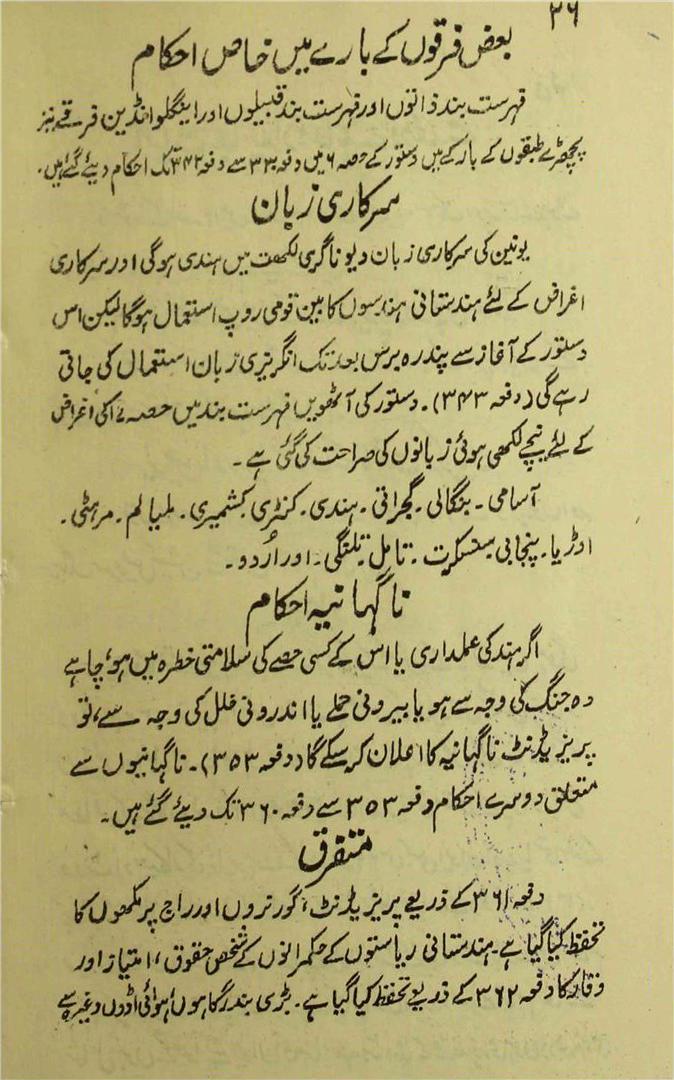 ۳۶
بعض فرقوں کے بارے میں خاص احکام
فہرست بند ذاتوں اور فہرست بند قبیلوں اور اینگلو انڈین فرقے نیز
پچھڑے طبقوں کے بارے میں دستور کے حصہ ۶ میں دفعہ ۳۳۰ سے دفعہ ۳۴۲ تک احکام دیئے گئے ہیں۔
سرکاری زبان
یونین کی سرکاری زبان دیوناگری لکھت میں ہندی ہوگی اور سرکاری
اغراض کے لئے ہندستانی ہندسوں کا بین قومی روپ استعمال ہوگا لیکن اس
دستور کے آغاز سے پندرہ برس بعد تک انگریزی زبان استعمال کی جاتی
رہے گی (دفعہ ۳۴۳)۔ دستور کی آٹھویں فہرست بند میں حصہ ۷ کی اغراض
کے لئے نیچے لکھی ہوئی زبانوں کی صراحت کی گئی ہے۔
آسامی۔ بنگالی۔ گجراتی۔ ہندی۔ کنڑی کشمیری۔ ملیالم۔ مرہٹی۔
اوڑیا۔ پنجابی سنسکرت۔ تامل۔ تلنگی۔ اور اُردو۔
ناگہانیہ احکام
اگر ہند کی عملداری یا اس کے کسی حصے کی سلامتی خطرہ میں ہو، چاہے
وہ جنگ کی وجہ سے ہو یا بیرونی حملے یا اندرونی خلل کی وجہ سے، تو
پریزیڈنٹ ناگہانیہ کا اعلان کر سکے گا (دفعہ ۳۵۳)۔ ناگہانیوں سے
متعلق دوسرے احکام دفعہ ۳۵۳ سے دفعہ ۳۶۰ تک دیئے گئے ہیں۔
متفرق
دفعہ ۳۶۱ کے ذریعے پریزیڈنٹ، گورنروں اور راج پرمکھوں کا
تحفظ کیا گیا ہے۔ ہندستانی ریاستوں کے حکمرانوں کے شخصی حقوق، امتیاز اور
وقار کا دفعہ ۳۶۲ کے ذریعے تحفظ کیا گیا ہے۔ بڑی بندرگاہوں، ہوائی اڈوں وغیرہ سے